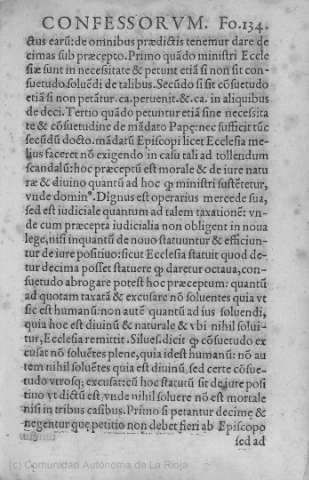 CONFESSORVM. Fo.134.
ctus earū: de omnibus prædictis tenemur dare de
cimas sub præcepto. Primo quãdo ministri Eccle
siæ sunt in necessitate & petunt etiã si non sit con-
suetudo soluẽdi de talibus. Secũdo si sit cõsuetudo
etiã si non petãtur. ca. peruenit. & .ca. in aliquibus
de deci. Tertio quãdo petuntur etiã sine necessita
te & cõsuetudine de mãdato Papę: nec sufficit tũc
secũdũ docto. mãdatũ Episcopi licet Ecclesia me-
lius faceret nõ exigendo in casu tali ad tollendum
scandalũ: hoc præceptũ est morale & de iure natu
ræ & diuino quantũ ad hoc ꝙ ministri sustẽretur,
vnde dominꝰ. Dignus est operarius mercede sua,
sed est iudiciale quantum ad talem taxationẽ: vn-
de cum præcepta iudicialia non obligent in noua
lege, nisi inquantũ de nouo statuuntur & efficiun-
tur de iure positiuo: sicut Ecclesia statuit quod de-
tur decima posset statuere ꝙ daretur octaua, con-
suetudo abrogare potest hoc præceptum: quantũ
ad quotam taxatã & excusare nõ soluentes quia vt
sic est humanũ: non autẽ quantũ ad ius soluendi,
quia hoc est diuinũ & naturale & vbi nihil solui-
tur, Ecclesia remittit. Silues. dicit ꝙ cõsuetudo ex
cusat nõ soluẽtes plene, quia idest humanũ: nõ au
tem nihil soluẽtes quia est diuinũ, sed certe cõsue-
tudo vtrosq; excusat: cũ hoc statutũ sit de iure posi
tiuo vt dictũ est, vnde nihil soluere nõ est mortale
nisi in tribus casibus. Primo si petantur decimę &
negentur quę petitio non debet fieri ab Episcopo
sed ad
(c) Comunidad Autónoma de La Rioja